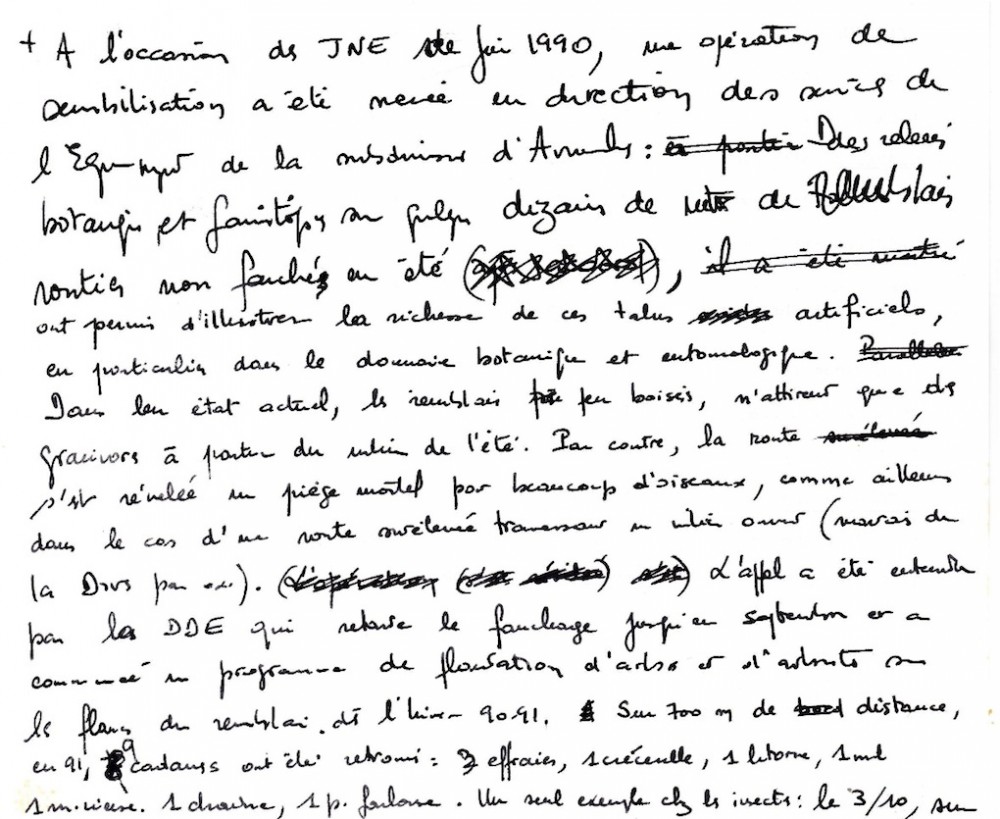 + A l'occasion des JNE de Juin 1990, une opération de
sensibilisation a été menée en direction des services de
l'Equipement de la subdivision d' : à partir Des relevés
botaniques et faunistiques sur quelques dizaines de de Remblais
routiers non fauchés en été ( ), il a été montré
ont permis d'illustrer la richesse de ces talus artificiels,
en particulier dans le domaine botanique et entomologique.
Dans leur état actuel, les remblais peu boisés, n'attirent que des
granivores à partir du milieu de l'été. Par contre, la route surélevée
s'est révélée un piège mortel pour beaucoup d'oiseaux, comme ailleurs
dans le cas d'une route surélevée traversant un milieu ouvert (marais de
la Dives par ex.). L'appel a été entendu
par la DDE qui retarde le fauchage jusqu'en septembre et a
commencé un programme de plantation d'arbres et d'arbustes sur
les flancs du remblai dès l'hiver 90-91. Sur 700 m de distance,
en 91, 9 cadavres ont été retrouvés : 3 effraies, 1 crécerelle, 1 litorne, 1 merle
1 m. rieuse. 1 draine, 1 p. farlouse. Un seul exemple chez les insectes : le 3/10, sur